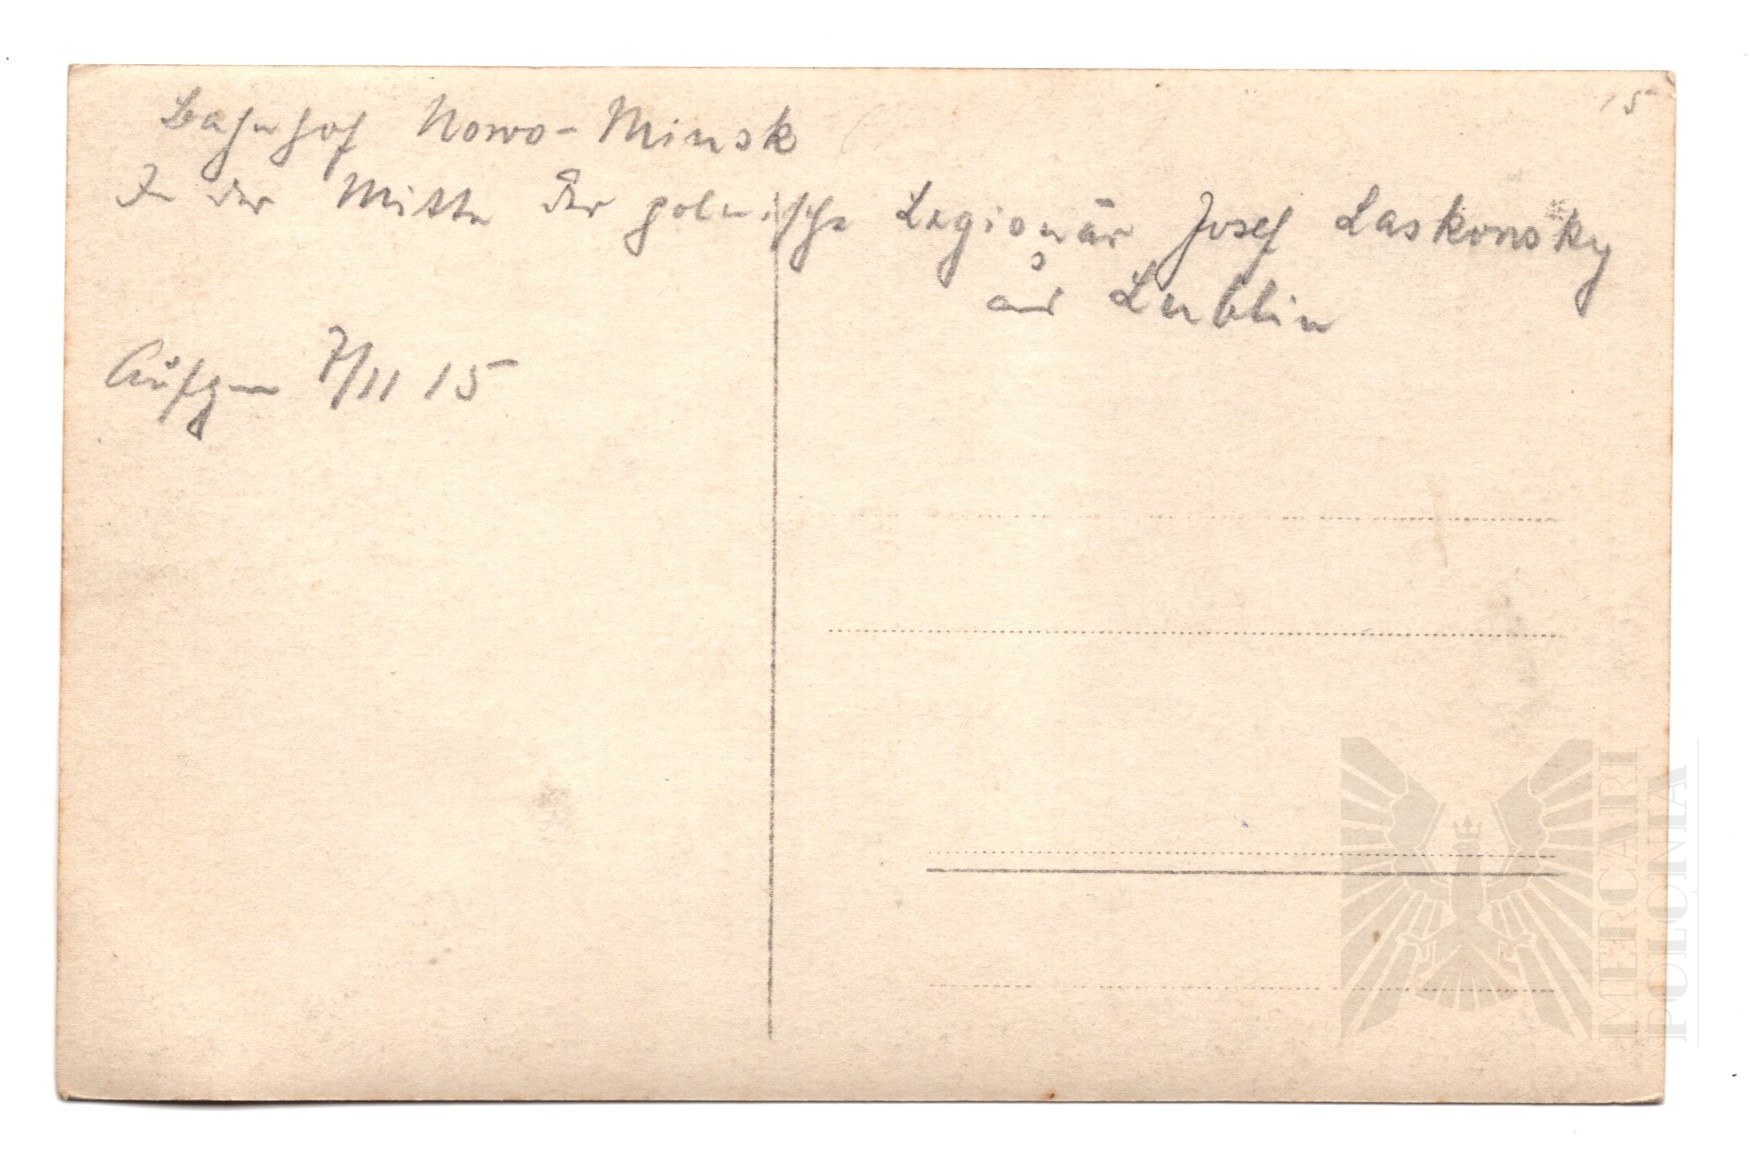 15
Bahnhof Nowo-Minsk
In der Mitte der polnische Legionär Josef Laskowsky
aus Lublin
Aufgen 7/11 15
MERCARI
POLONIA